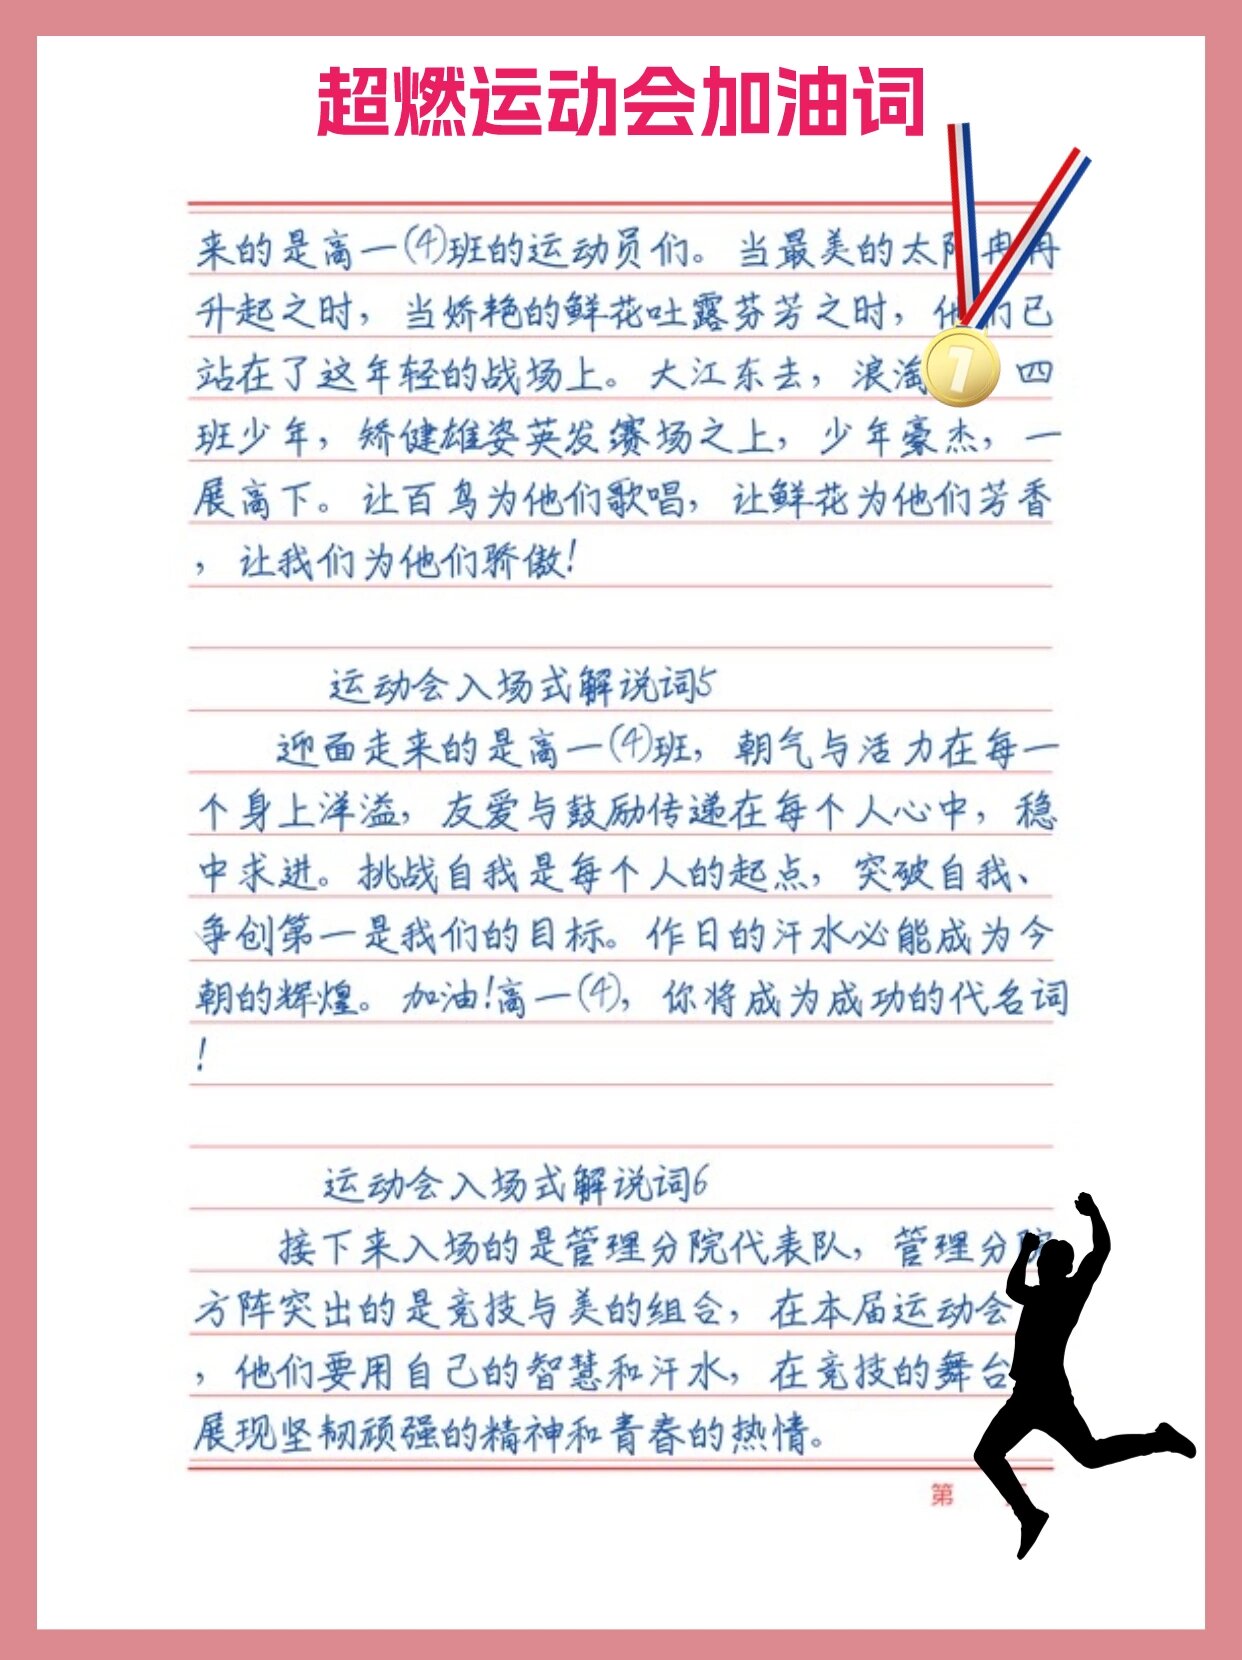 超燃运动会加油词
来的是高一(4)班的运动员们。当最美的太阳冉冉
升起之时，当娇艳的鲜花吐露芬芳之时，他们已
站在了这年轻的战场上。大江东去，浪淘 四
班少年，矫健雄姿英发赛场之上，少年豪杰，一
展高下。让百鸟为他们歌唱，让鲜花为他们芳香
，让我们为他们骄傲！
运动会入场式解说词5
迎面走来的是高一(4)班，朝气与活力在每一
个身上洋溢，友爱与鼓励传递在每个人心中，稳
中求进。挑战自我是每个人的起点，突破自我、
争创第一是我们的目标。作日的汗水必能成为今
朝的辉煌。加油！高一(4)，你将成为成功的代名词
！
运动会入场式解说词6
接下来入场的是管理分院代表队，管理分院
方阵突出的是竞技与美的组合，在本届运动会
，他们要用自己的智慧和汗水，在竞技的舞台
展现坚韧顽强的精神和青春的热情。
第